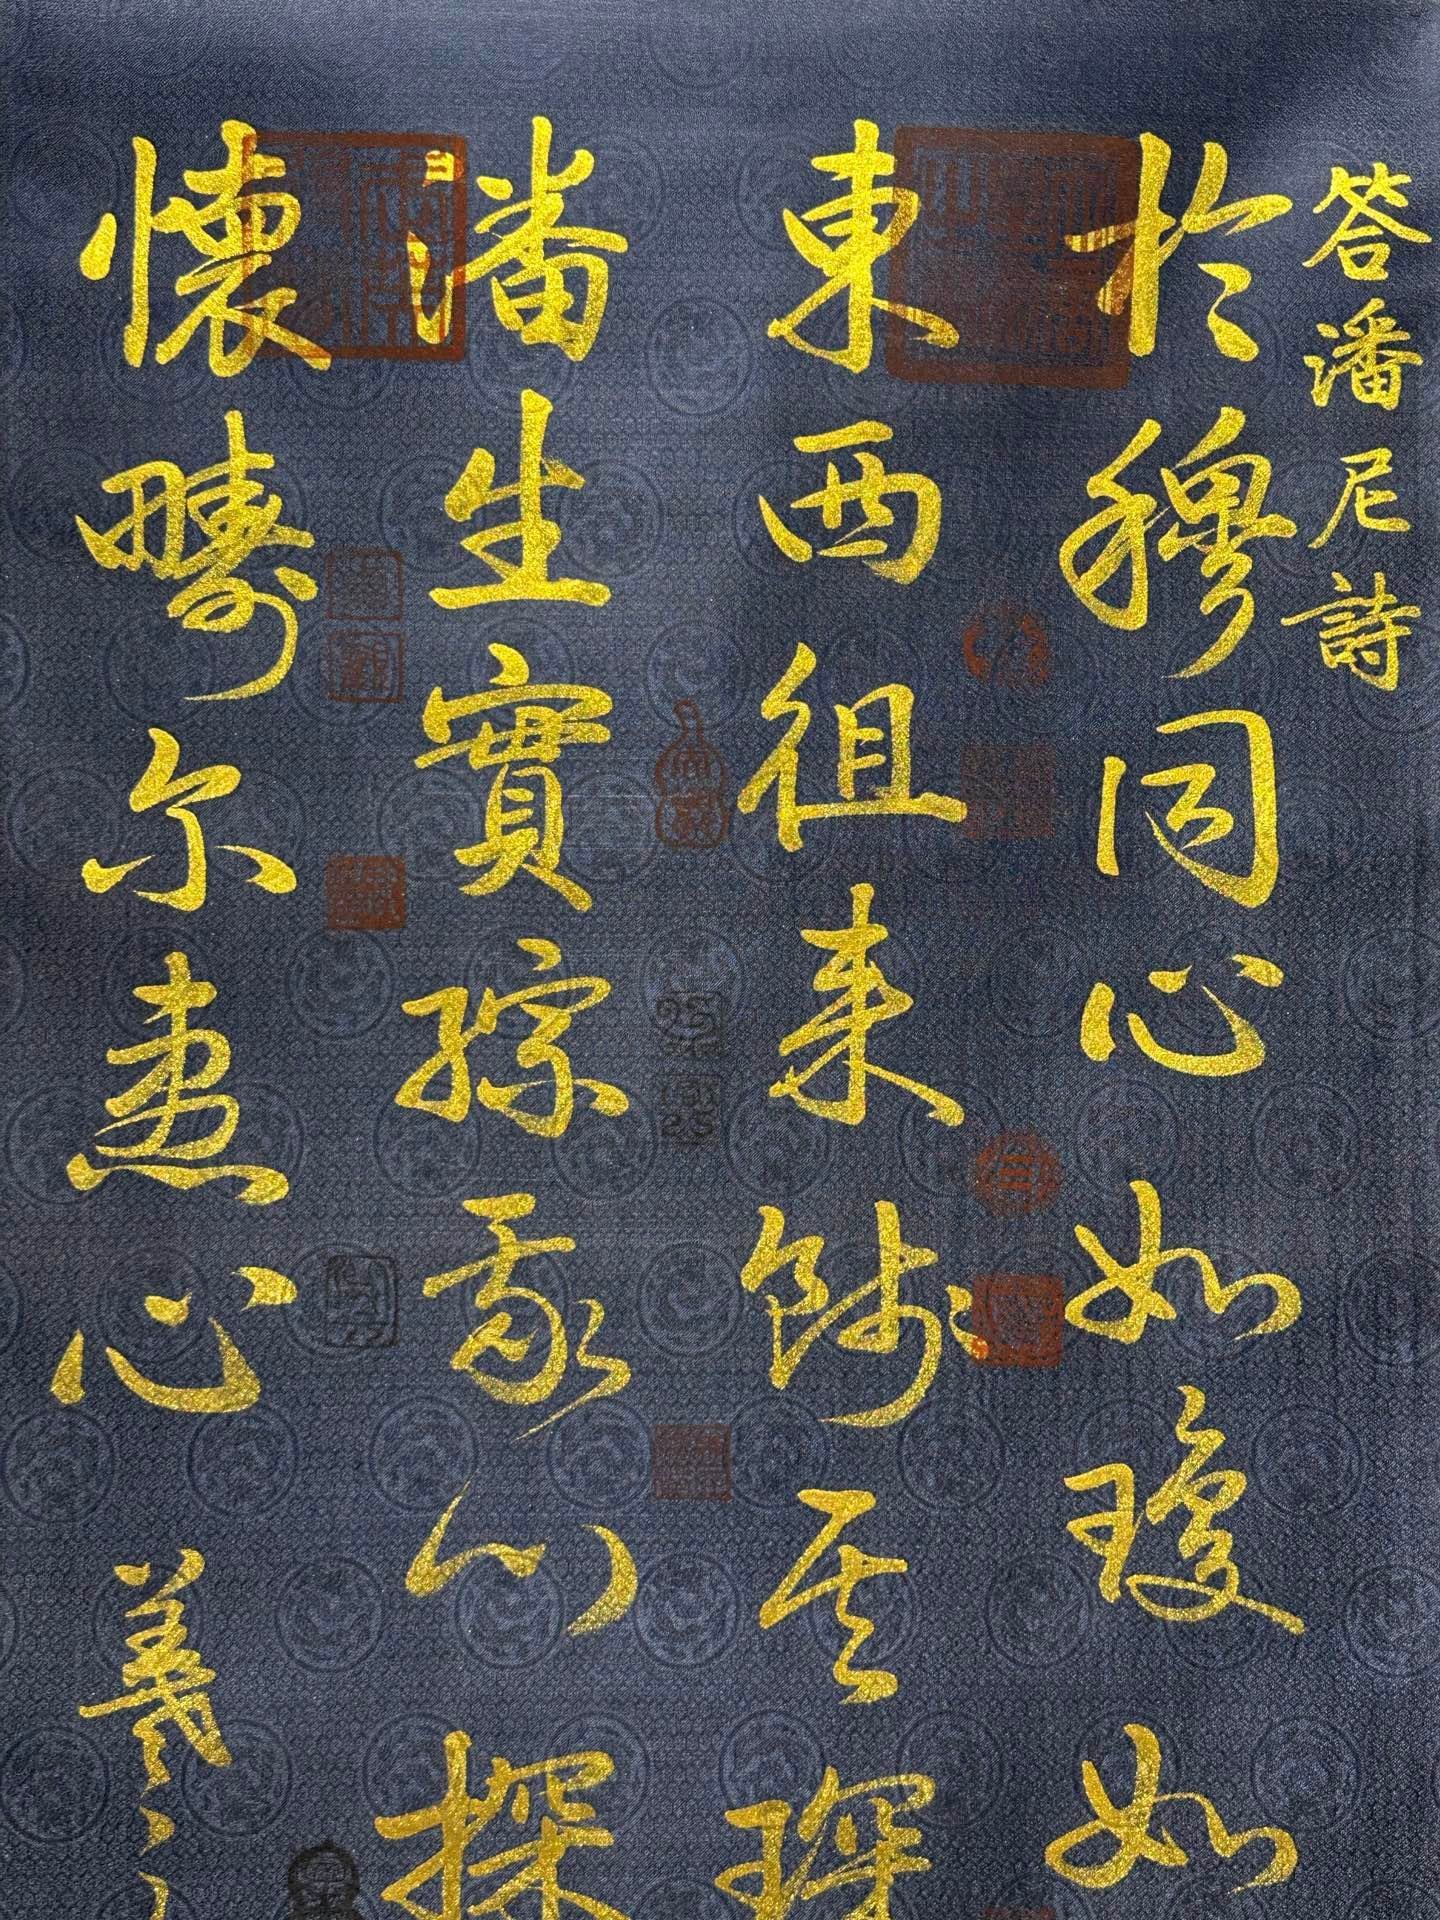 答潘尼詩
於穆同心如瓊如
東西徂来餞其琛
潘生實綜我心探
懷疇尔惠心 羲之